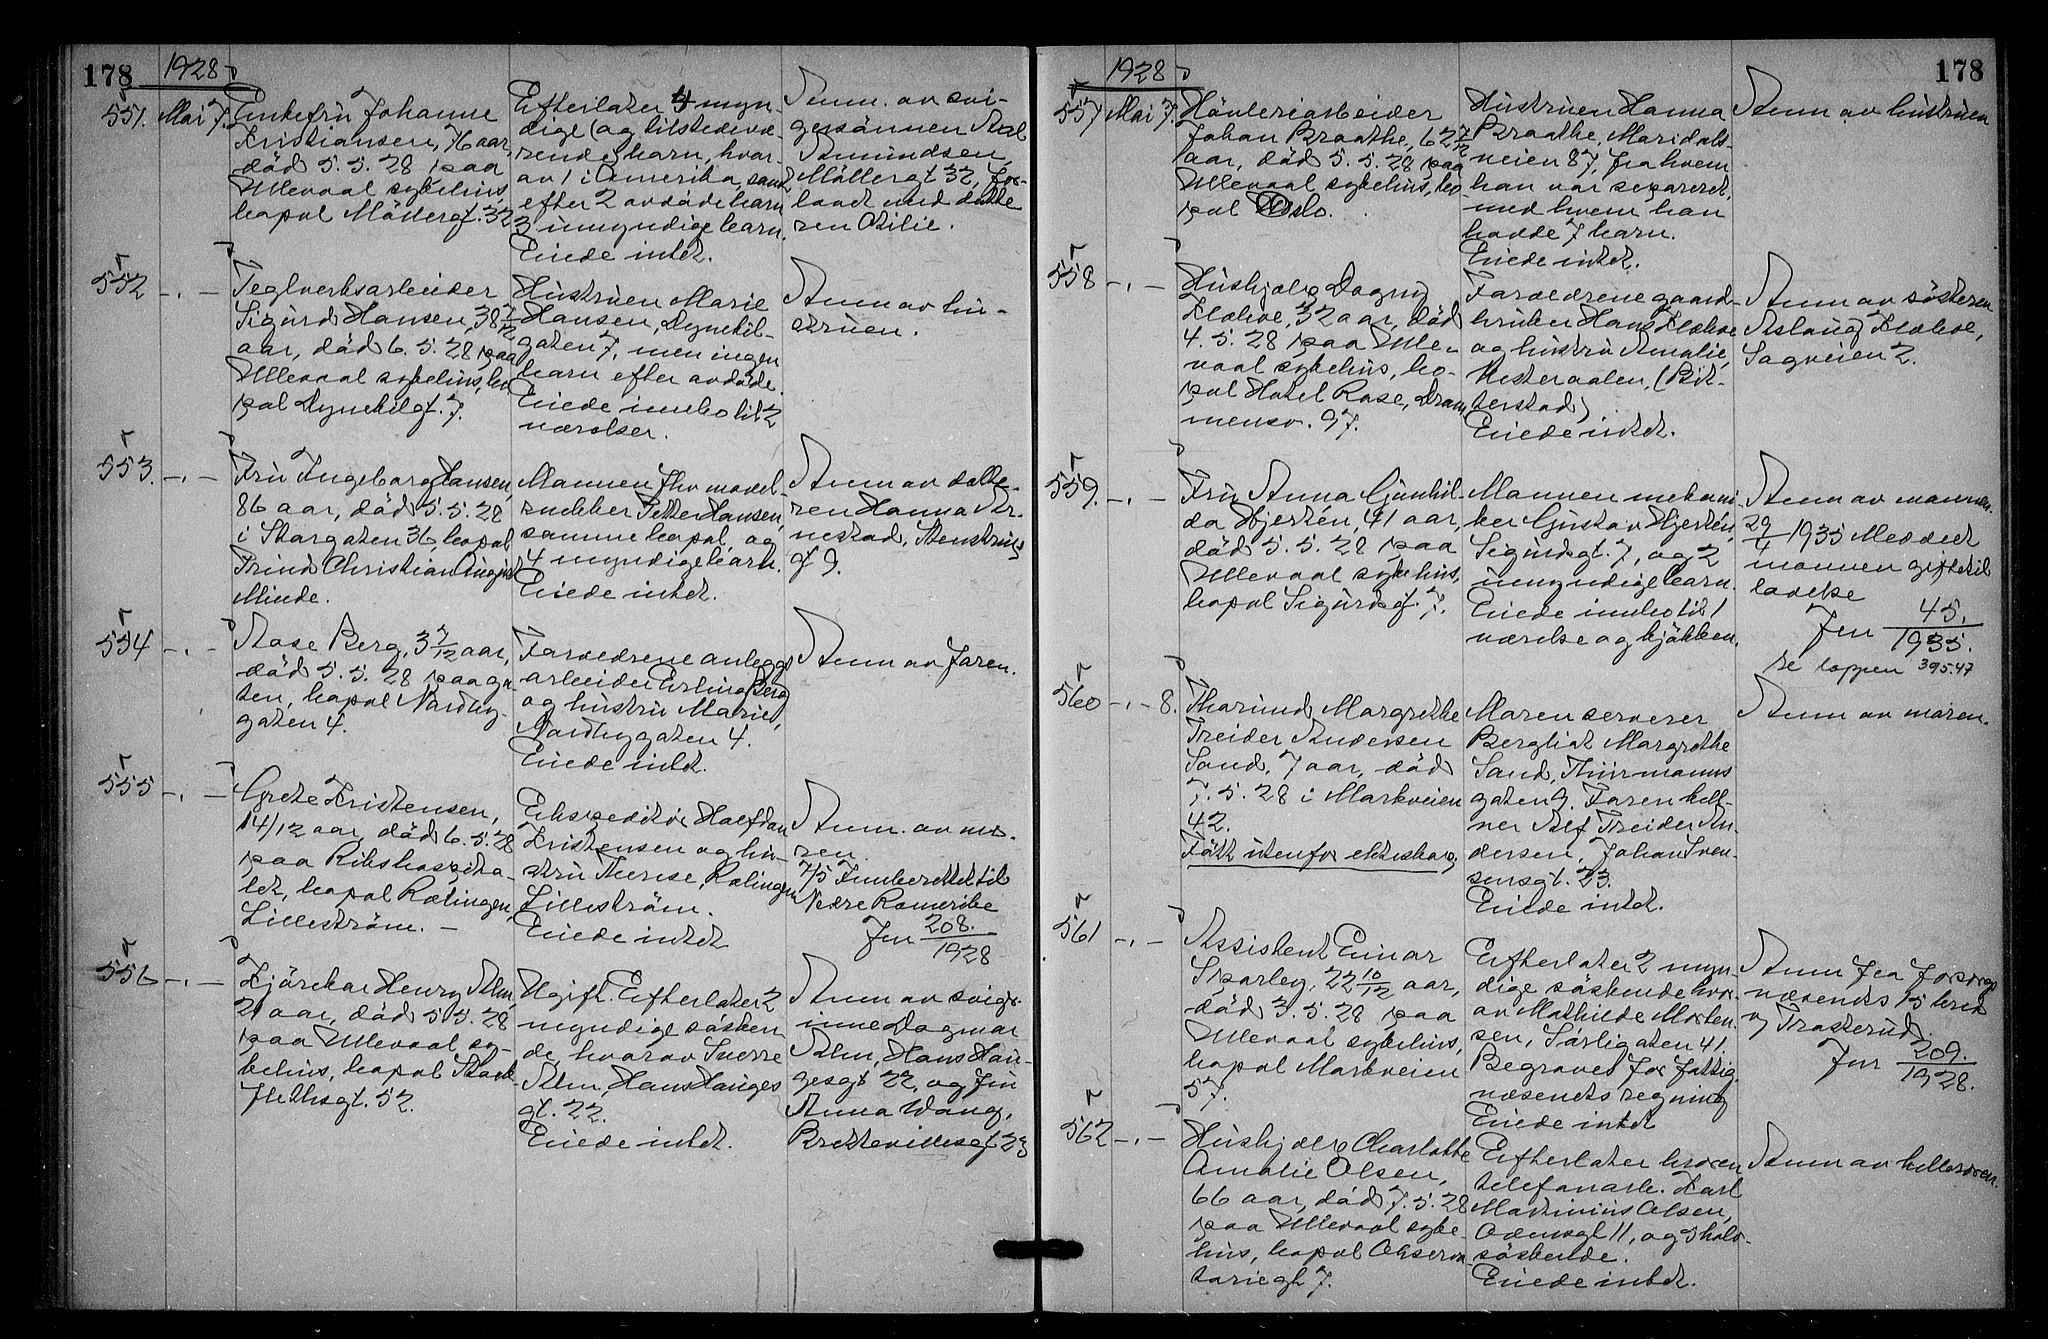 178 1928
551. Mai 7. Enkefru Johanne
Kristiansen, 76 aar,
död 5.5.28 paa
Ullevaal sykehus,
bopæl Möllergt. 32
Efterlater 4 myn-
dige (og tilstedevæ-
rende) barn, hvor-
av 1 i Amerika, samt
efter 2 avdöde barn
3 umyndige barn.
Eiede intet.
Anm. av svi-
gersönnen Axel
Amundsen,
Möllergt 32, for-
lovet med datte
ren Otilie.
552 -.- Teglverksarbeider
Sigurd Hansen, 38 7/12
aar, död 6.5.28 paa
Ullevaal sykehus, bo
pæl Dynekilgt. 7.
Hustruen Marie
Hansen, Dynekil-
gaten 7, men ingen
barn efter avdöde.
Eiede innbo til 2
værelser.
Anm av hu-
struen.
553. -.- Fru Ingeborg Hansen,
86 aar, död 5.5.28
i Storgaten 36, bopæl
Prinds Christian Augusts
Minde.
Mannen fhv.
snekker Petter Hansen,
samme bopæl, og
4 myndige barn.
Eiede intet.
Anm av datte-
ren Hanna Ar-
nestad, Stenstrups
gt 9.
554 -.- Aase Berg, 3 7/12 aar,
död 5.5.28 paa ga-
ten, bopæl Nordby-
gaten 4.
Forældrene anleggs
arbeider Erling Berg
og hustru Marie,
Nordbygaten 4.
Eiede intet.
Anm av faren.
555 -.- Grete Kristensen,
14/12 aar, död 6.5.28
paa Rikshospita-
let, bopæl Rælingen,
Lilleström. -
Ekspeditör Halfdan
Kristensen og hu-
stru Therese, Rælingen,
Lilleström.
Eiede intet
Anm. av mo-
ren.
7/5 Innberettet til
Nedre Romerike
Jnr 208.
1928
556 -.- Kjörekar Henry Alm,
21 aar, död 5.5.28
paa Ullevaal sy-
kehus, bopæl Stock-
flethsgt. 52.
Ugift. Efterlater 2
myndige sösken
de, hvorav Sverre
Alm, Hans Hauges
gt. 22.
Eiede intet.
Anm av sviger-
inne Dagmar
Alm, Hans Hau-
gesgt 22, og fru
Anna Wang,
Brettevillesgt 23
1928 178
557 Mai 7. Hövleriarbeider
Johan Braathe, 62 7/12
aar, död 5.5.28 paa
Ullevaal sykehus, bo
pæl Oslo.
Hustruen Hanna
Braathe, Maridals-
veien 87, fra hvem
han var separeret,
med hvem han
havde 7 barn.
Eiede intet.
Anm av hustruen
558 -.- Hushjælp Dagny
Flækve, 32 aar, död
4.5.28 paa Ulle-
vaal sykehus, bo-
pæl Hotel Rose, Dram
mensv. 97.
Forældrene gaard-
bruker Hans Flækve
og hustru Amalie,
Vesteraalen, (Bit-
terstad)
Eiede intet.
Anm av sösteren
Aslaug Flækve,
Sagveien 2.
559. -.- Fru Anna Gunhil-
da Hjertén, 41 aar,
död 5.5.28 paa
Ullevaal sykehus,
bopæl Sigurdsgt. 7.
Mannen mekani
ker Gustav Hjertén,
Sigurdsgt. 7, og 2
umyndige barn.
Eiede innbo til 1
værelse og kjökken.
Anm av mannen.
29/4 1935 Meddelt
mannen giftetil
ladelse
Jnr 45.
1935.
se mappen 395.47
560 -.- 8. Thorunds Margrethe
Treider Andersen
Sand, 7 aar, död
7.5.28 i Markveien
42.
Född utenfor ekteskap.
Moren serverer
Bergliot Margrethe
Sand, Thurmanns
gaten 9. Faren kell-
ner Alf Treider An-
dersen, Johan Sven-
sensgt. 23.
Eiede intet.
Anm av moren.
561 -.- Assistent Einar
Sparley, 22 10/12 aar,
död 3.5.28 paa
Ullevaal sykehus,
bopæl Markveien
57.
Efterlater 2 myn
dige söskende hvor-
av Mathilde Morten-
sen, Sörligaten 41.
Begraves for fattig
væsenets regning
Eiede intet
Anm fra forsorgs
væsenets 15 kred
v/ Trosterud.
Jnr 209.
1928.
562 -.- Hushjælp Charlotte
Amalie Olsen,
66 aar, död 7.5.28
paa Ullevaal syke-
hus, bopæl Observa
toriegt 7.
Efterlater broren
telefonarb. Karl
Martinius Olsen,
Odinsgt 11, og 3 halv-
söskende.
Eiede intet.
Anm av halbroren.